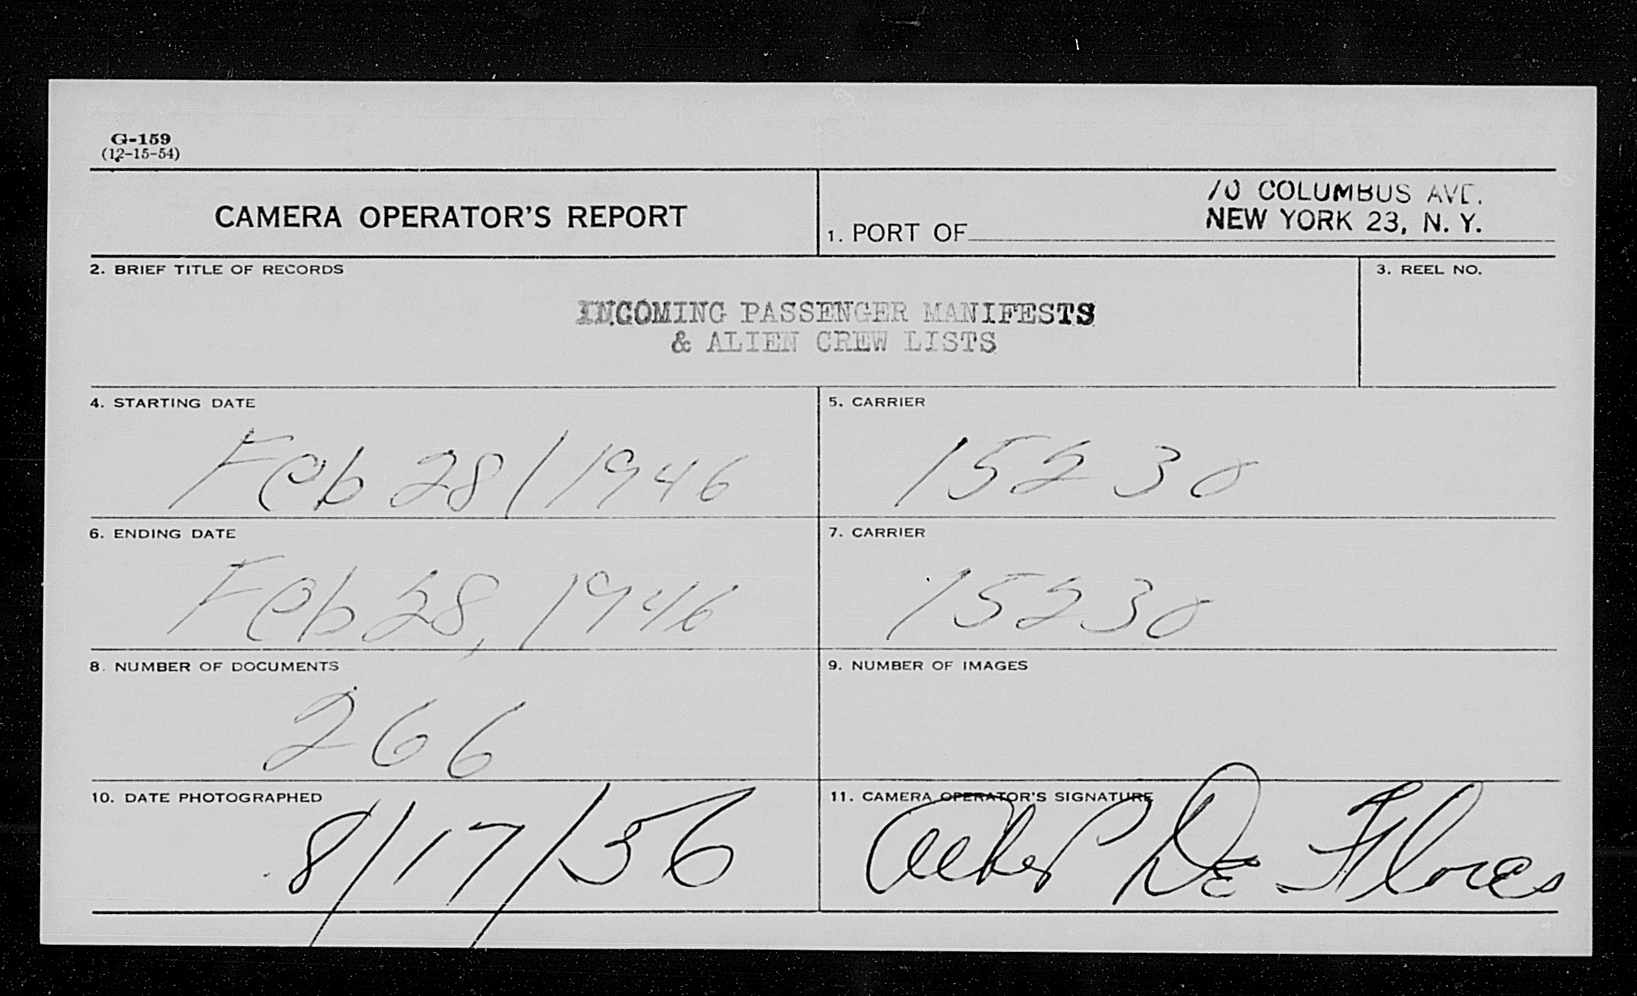 G-159
(12-15-54)
CAMERA OPERATOR'S REPORT
1. PORT OF
70 COLUMBUS AVE.
NEW YORK 23, N. Y.
2. BRIEF TITLE OF RECORDS
INCOMING PASSENGER MANIFESTS
& ALIEN CREW LISTS
3. REEL NO.
4. STARTING DATE
Feb 28/1946
5. CARRIER
15230
6. ENDING DATE
Feb 28, 1946
7. CARRIER
15230
8. NUMBER OF DOCUMENTS
266
9. NUMBER OF IMAGES
10. DATE PHOTOGRAPHED
8/17/56
11. CAMERA OPERATOR'S SIGNATURE
De Flores